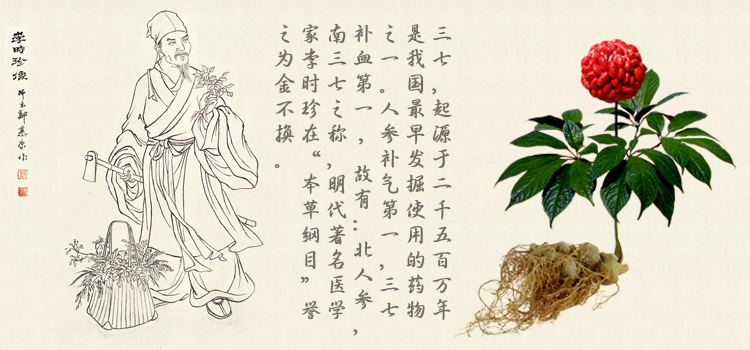 三七，起源于二千五百万年
是我国最早发掘使用的药物
之一。人参补气第一，三七
补血第一，故有：北人参，
南三七之称，明代著名医学
家李时珍在“本草纲目”誉
之为金不换。
李時珍像